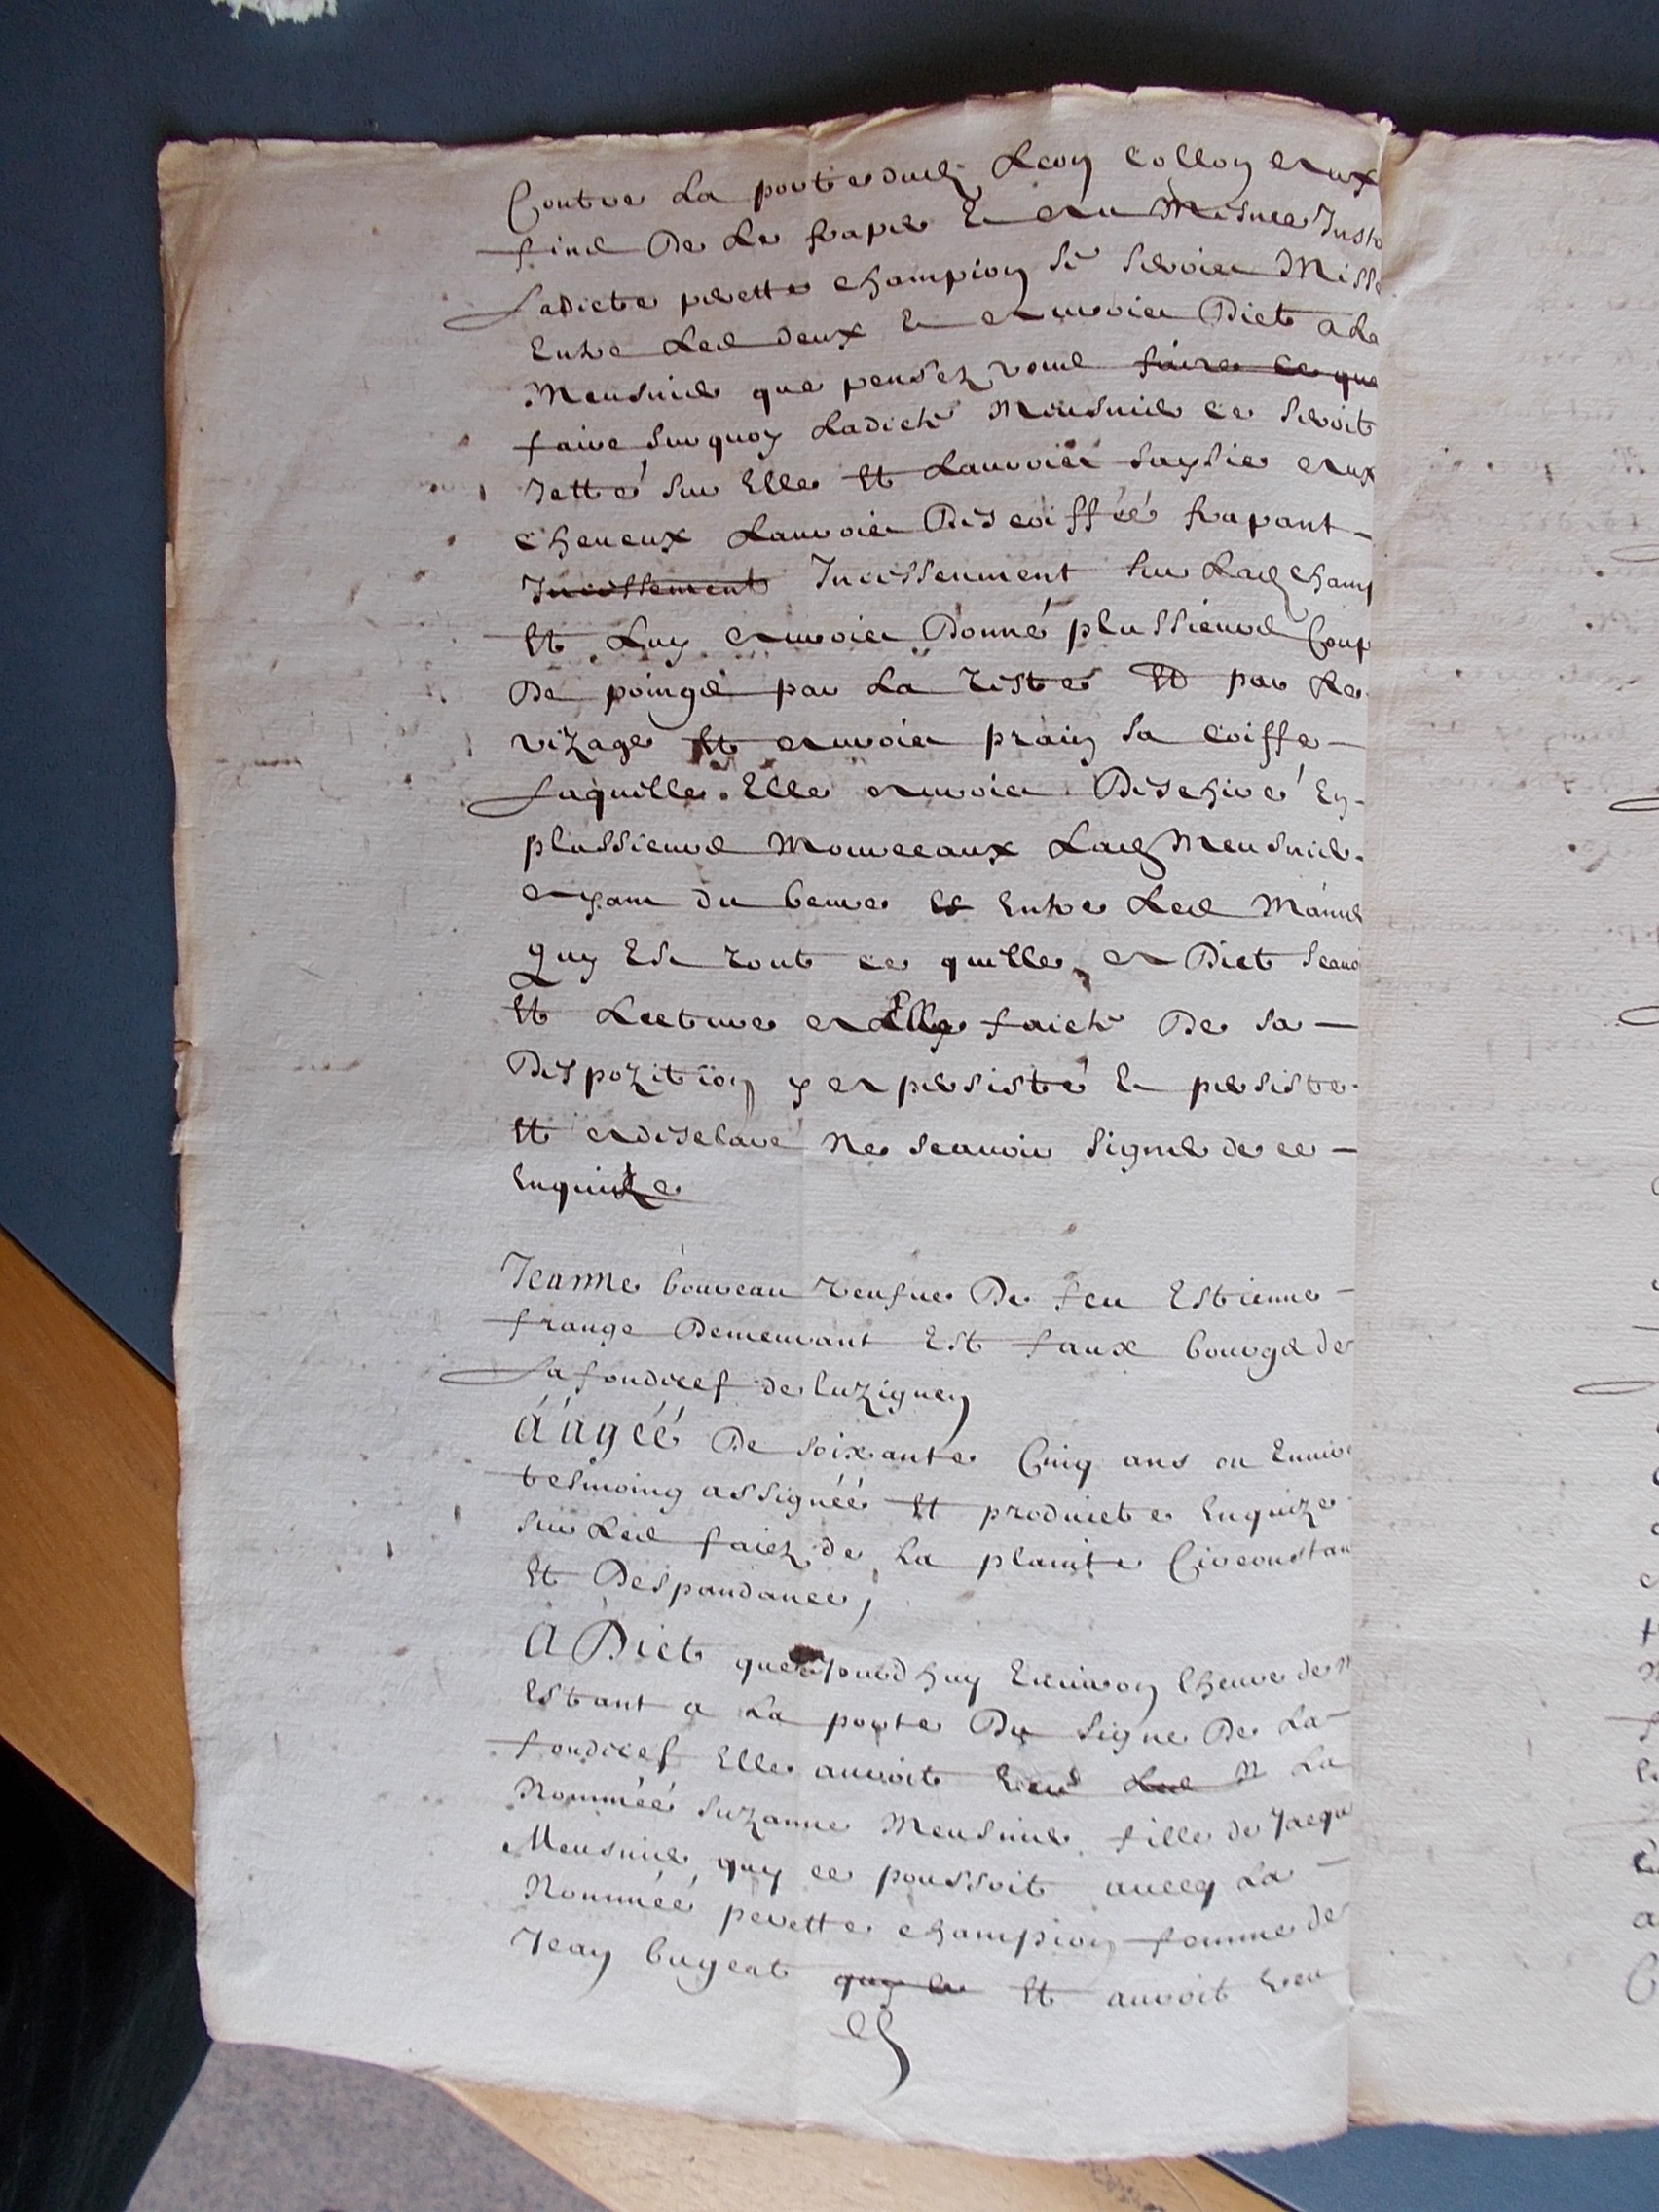 Contre la porte dud Leon Collon et aux
fins de le fraper et en mesme Inst
ladicte perette champion se seroict misse
Entre les deux et auroict dict a la
Meusnier que pensez vous faire ce que
faire surquoy ladicte Meusnier ce seroit
Jetté sur Elle et lauroict saysie aux
cheveux lauroict descoiffée frapant
Incessement Incessenment sur lad champ
et luy auroict donné plussieurs Coup
de poings par la teste et par le
vizage et auroict prain sa coiffe
laquille Elle auroict deschiré en
plussieurs mourceaux lad Meusnier
ayant du beure es Entre les mains
quy Est tout ce quelle a dict scavo
et lecture a Elle faicte de sa
despozition y a persisté et persiste
et a desclaré ne scavoir signer de ce
Enquize
Jeanne boureau veufve de feu Estienne
frange demeurant Est faux bourgs de
la fondicef de luzignen
áágéé de soixante Cinq ans ou Enviro
tesmoing assignéé et produicte Enquize
sur les faicz de la plainte Circonstan
et despandance,
A dict que ajourdhuy Environ lheure de m
Estant a la porte du signe de la
fondicef Elle auroit veu les n la
Nomméé suzanne Meusnier fille de Jacqu
Meusnier quy ce poussoit avecq la
Nomméé perette champion femme de
Jean bugeat quy la et auroit veu